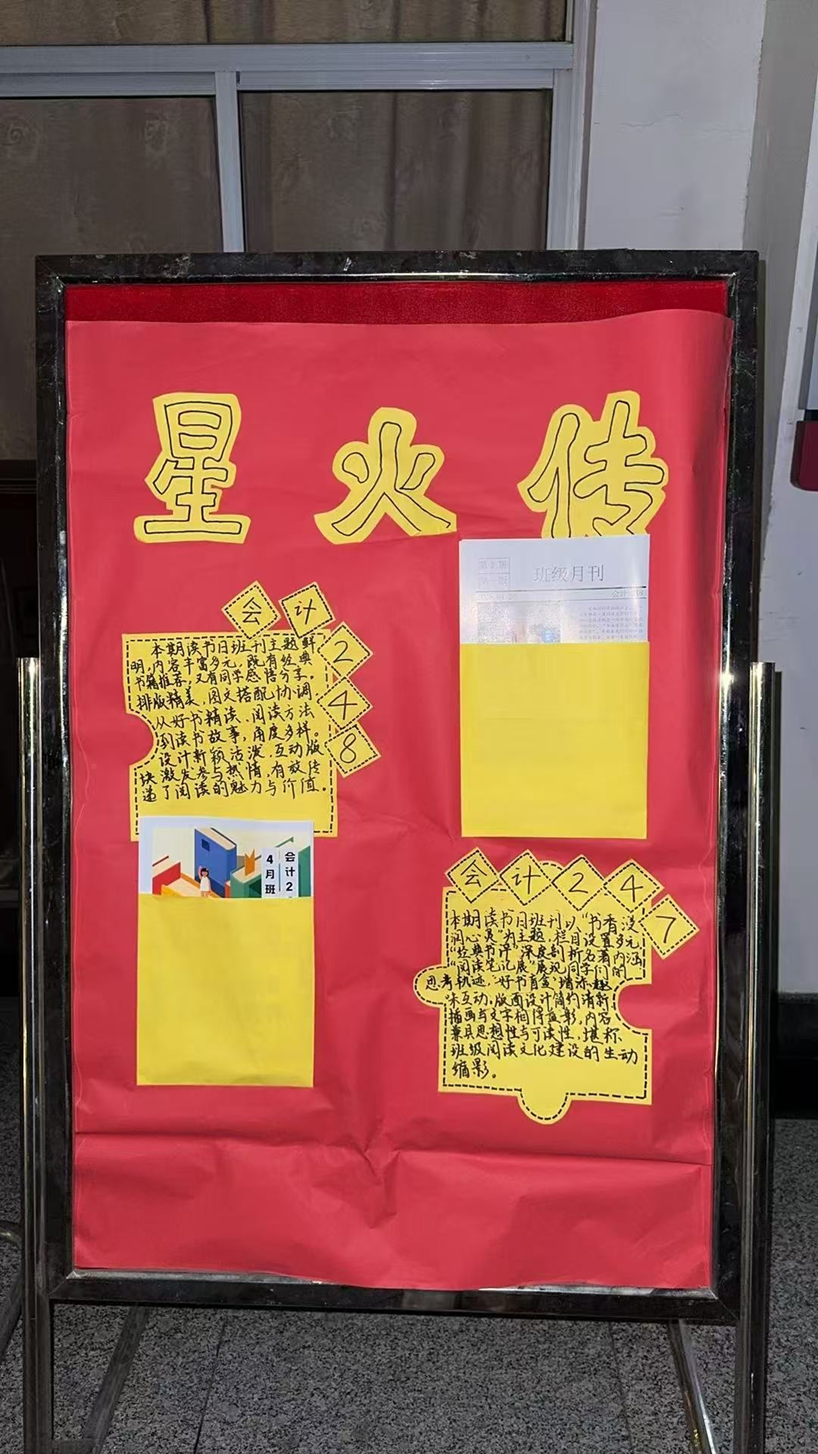 星火传
会计248
本期读书日班刊主题鲜
明,内容丰富多元,既有经典
书籍推荐,又有同学感悟分享。
排版精美,图文搭配协调,
从好书精读、阅读方法
到读书故事,角度多样。
设计新颖活泼,互动版
块激发参与热情,有效传
递了阅读的魅力与价值。
班级月刊
4月班
会计2
会计247
本期读书日班刊以“书香浸
润心灵”为主题,栏目设置多元
“经典书评”深度剖析名著内涵
“阅读笔记展”展现同学们的
思考轨迹,“好书盲盒”增添趣
味互动,版面设计简约清新
插画与文字相得益彰,内容
兼具思想性与可读性,堪称
班级阅读文化建设的生动
缩影。